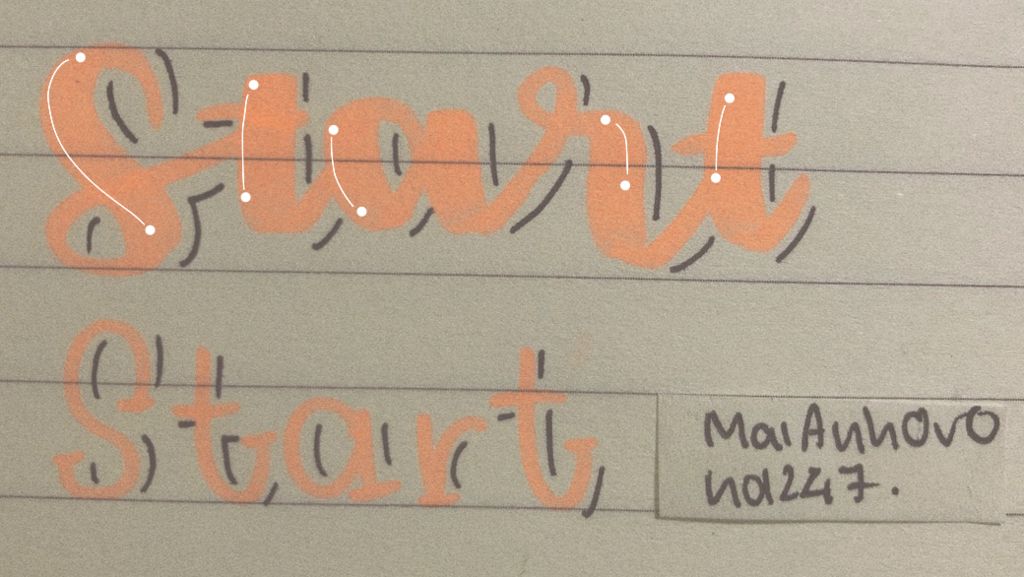 Start
Start
MaiAnhOvO
hoi247.